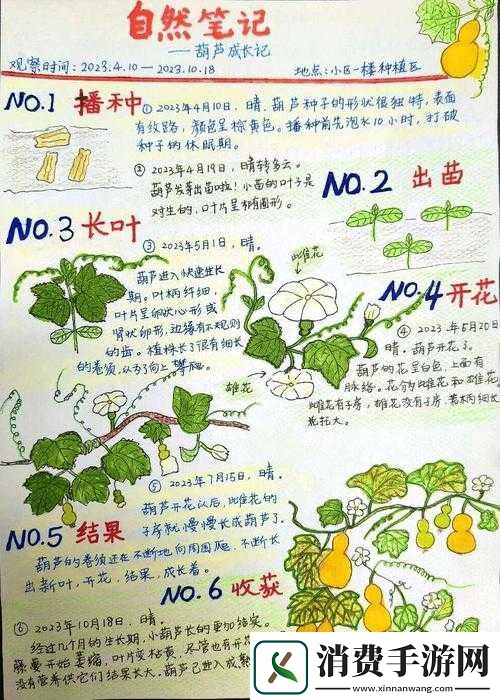 自然笔记
——葫芦成长记
观察时间：2023.4.10—2023.10.18
地点：小区一楼种植区
NO.1 播种
① 2023年4月10日，晴。葫芦种子的形状很独特，表面
有纹路，颜色呈棕黄色。播种前先泡水10小时，打破
种子的休眠期。
② 2023年4月19日，晴转多云。
葫芦发芽出苗啦！小苗的叶子是
对生的，叶片呈卵圆形。
NO.2 出苗
NO.3 长叶
③ 2023年5月1日，晴。
葫芦进入快速生长
期。叶柄纤细，
叶片呈卵状心形或
肾状卵形，边缘有不规则
的齿。植株长了很有细长
的卷须，从多向上攀爬。
雌花
雄花
NO.4 开花
④ 2023年5月20日
晴。葫芦开花了。
葫芦的花呈白色，上面有
脉络。花分雌花和雄花
雌花有子房，雄花没有子房，花柄细长
光托大。
⑤ 2023年7月15日，晴。
葫芦开花以后，雌花的
子房就慢慢长成葫芦了。
NO.5 结果
葫芦的卷须还在不断地向周围爬，不断长
出新叶，开花，结果，成长着。
NO.6 收获
⑥ 2023年10月18日，晴。
经过几个月的生长期，小葫芦长的更加结实。
藤蔓开始萎缩，叶片变枯黄，尽管也有开花
没有营养供它们结果长大。葫芦已进入成熟
消费手游网
www.xinnanwang.cn